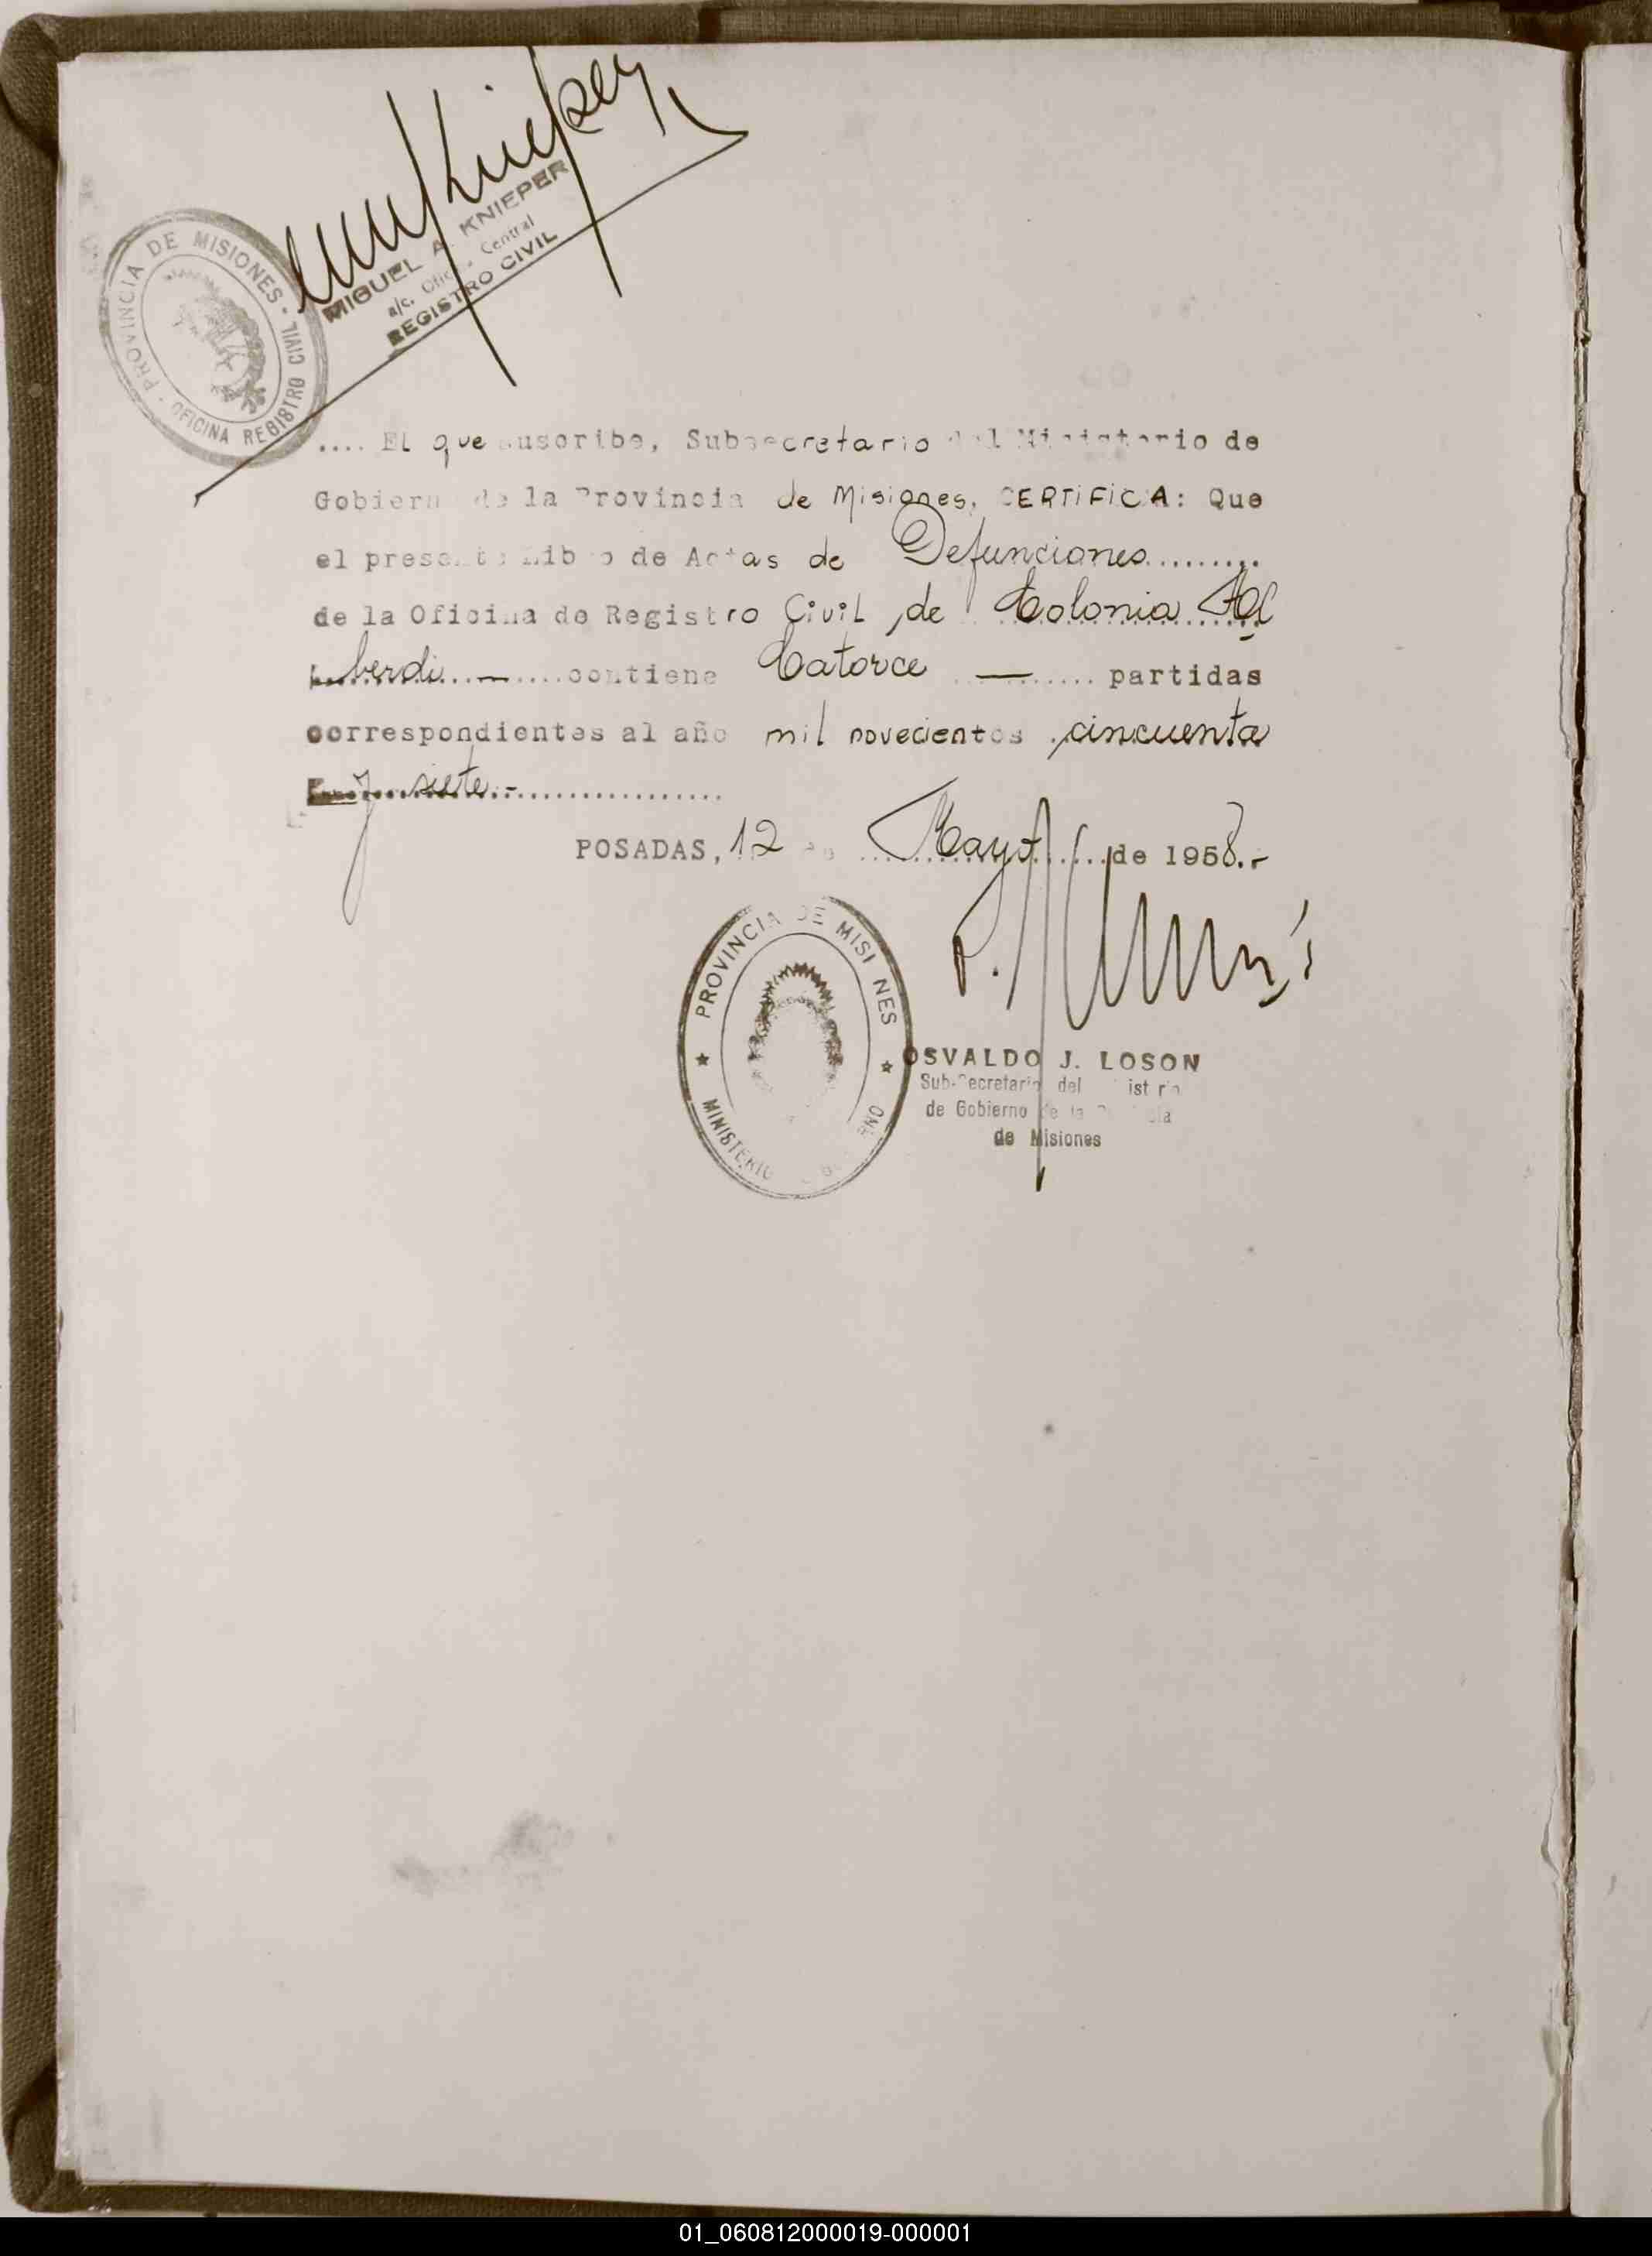 MIGUEL A. KNIEPER
a/c. Oficina Central
REGISTRO CIVIL
PROVINCIA DE MISIONES - OFICINA REGISTRO CIVIL -
.... El que suscribe, Subsecretario del Ministerio de
Gobierno de la Provincia de Misiones, CERTIFICA: Que
el presente Libro de Actas de Defunciones.........
de la Oficina de Registro Civil de Colonia Al
berdi - .... contiene Catorce — ...... partidas
correspondientes al año mil novecientos cincuenta
y siete.-..................
POSADAS, 12 de Mayo de 1958.-
PROVINCIA DE MISIONES
MINISTERIO DE GOBIERNO
OSVALDO J. LOSON
Sub-Secretario del Ministerio
de Gobierno de la Provincia
de Misiones
01_060812000019-000001